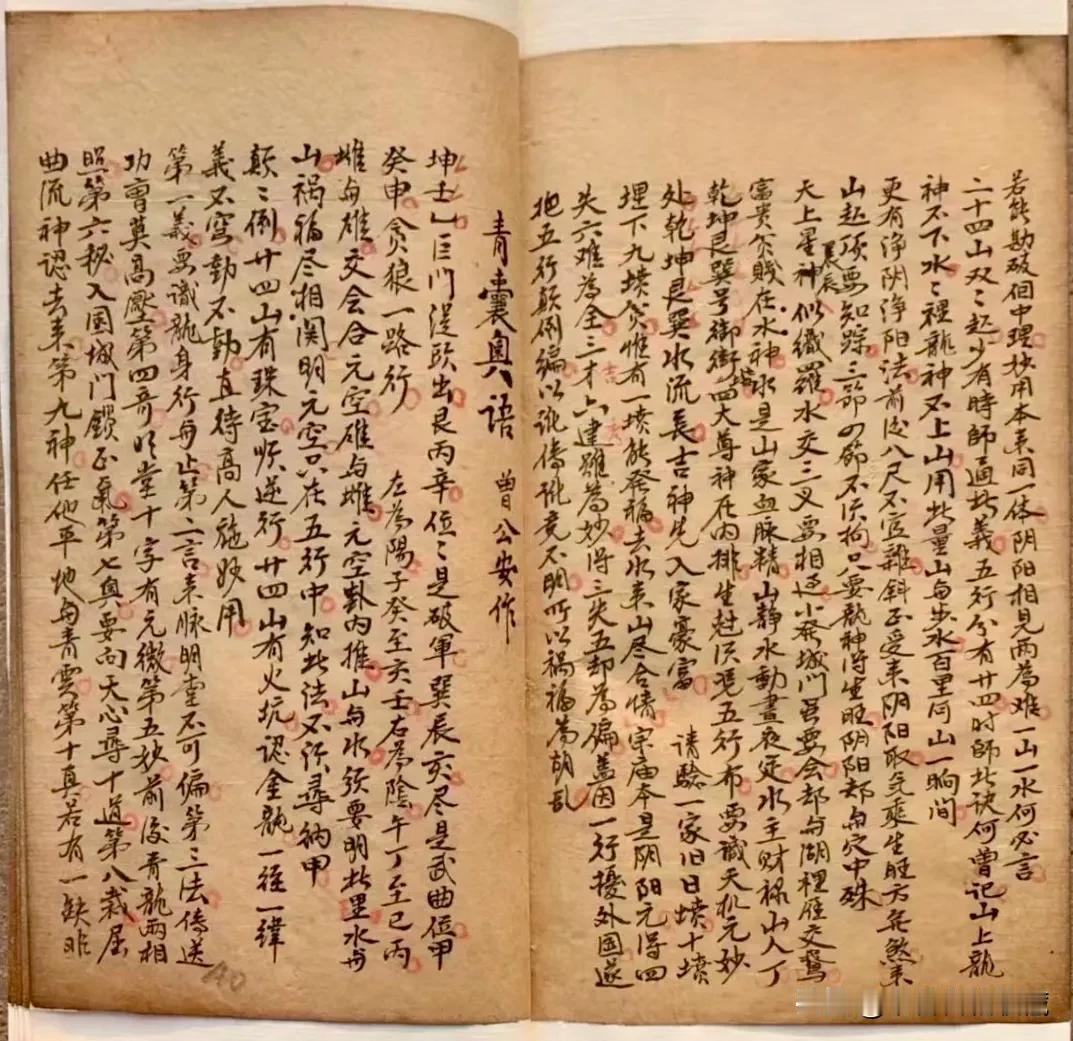 若能勘破个中理妙用本来同一体阴阳相見两為难一山一水何必言
二十四山双二起少有時師通此義五行分有廿四时師此诀何曾记山上龍
神不下水二裡龍神不上山用此量山与步水百里何山一晌间
更有净阴净阳法前后八尺不宜雜斜正受来阴阳取气乘生旺方無煞来
山起頂要知踪三節四節不須拘只要龍神得生旺阴阳却与穴中殊
天上星辰似织羅水交三叉要相过小発城門吾要会却与湖裡雁交鵞
富貴貧賤在水神水是山家血脉精山静水動晝夜定水主财禄山人丁
乾坤艮巽号御街四大尊神在内排生尅須凭五行布要識天机元妙
处乾坤艮巽水流長吉神先入家豪富　請驗一家旧日墳十墳
埋下九墳贫惟有一墳能発福去水来山尽合情宗庙本是阴阳元得四
失六难為全三才六建雖為妙得三失五却為偏盖因一行擾外国遂
把五行颠倒編以訛傳訛竟不明所以禍福為胡乱
青囊奧语　曾公安作
坤壬乙巨門従头出艮丙辛位二是破軍巽辰亥尽是武曲位甲
癸申贪狼一路行　左為陽子癸至亥壬右為陰午丁至巳丙
雌与雄交会合元空雄与雌元空卦内推山与水须要明此里水与
山祸福尽相関明元空只在五行中知此法不须尋納甲
颠二倒廿四山有珠宝顺逆行廿四山有火坑认金龍一经一緯
義不空動不動直待高人施妙用
第一義要識龍身行与止第二言来脉明堂不可偏第三法傳送
功曹莫高壓第四奇明堂十字有元微第五妙前後青龍两相
照第六秘入国城門鎖正氣第七奥要向天心尋十道第八裁屈
曲流神認去来第九神任他平地与青雲第十真若有一缺非
40